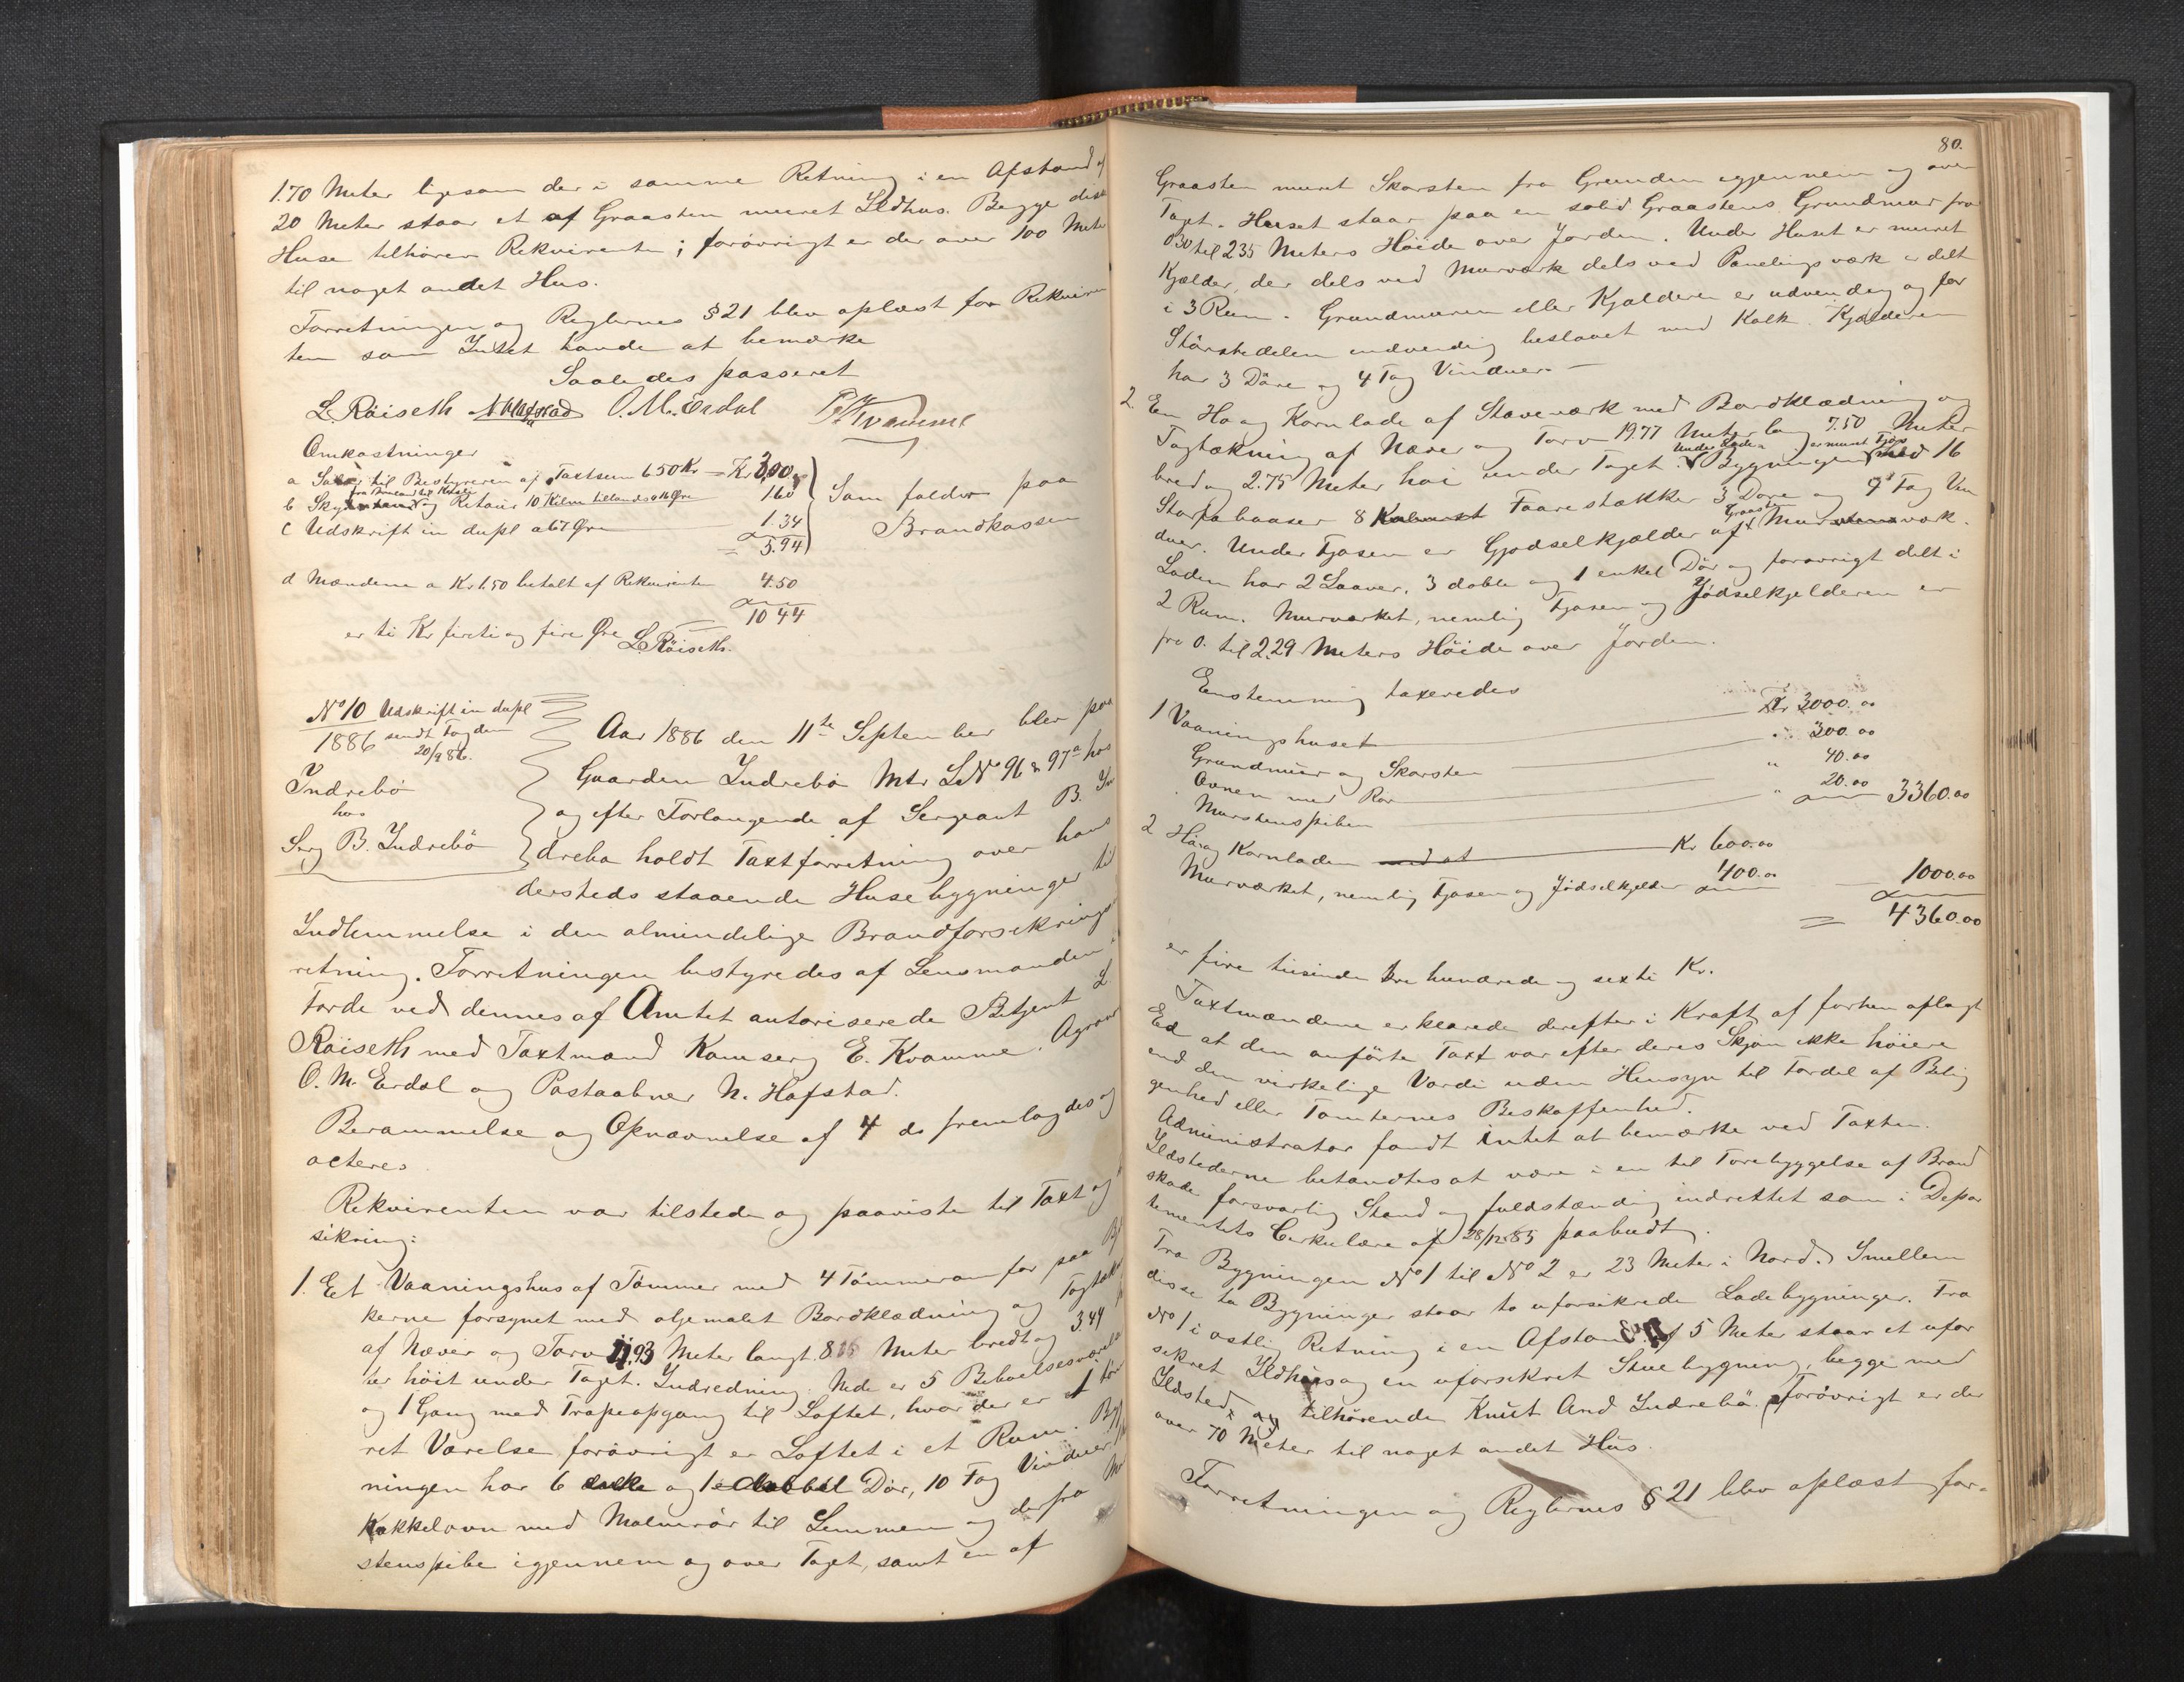 1.70 Meter ligesom der i samme Retning i en Afstand af
20 Meter staar et af Graasten muret Ildhus. Begge disse
Huse tilhører Rekvirenten; forøvrigt er der over 100 Meter
til noget andet Hus.
Forretningen og Reglernes § 21 blev oplæst for Rekviren
ten som Intet havde at bemærke
Saaledes passeret
L. Röiseth N. Hafstad O. M. Erdal E. Kvamme
Omkostninger
a Salær til Bestyreren af Taxtsum 650 Kr = Kr 3,00
b Skyds og Retour 10 Kilm tillands a 16 Øre 1.60
c Udskrift in dupl a 67 Øre 1.34
= 5.94
Som falder paa
Brandkassen
d Mændene a Kr 1.50 betalt af Rekvirenten 4.50
10 44
er ti Kr firti og fire Øre L. Röiseth.
No 10 Udskrift in dupl
1886 sendt Fogden
20/9 86.
Indrebö
hos
Serg B. Indrebö
Aar 1886 den 11te September blev paa
Gaarden Indrebö Mtr L No 96 & 97a hos
og efter Forlangende af Sergeant B. In
drebø holdt Taxtforretning over hans
dersteds staaende Husebygninger til
Indlemmelse i den almindelige Brandforsikrings
retning. Forretningen bestyredes af Lensmanden i
Førde ved dennes af Amtet autoriserede Betjent L.
Röiseth med Taxtmænd Komserg E. Kvamme, Agrono
O. M. Erdal og Postaabner N. Hafstad.
Berammelse og Opnævnelse af 4 ds fremlagdes og
acteres
Rekvirenten var tilstede og paaviste til Taxt og
sikring:
1. Et Vaaningshus af Tömmer med 4 Tömmeromfar paa Bj
kerne forsynet med oljemalet Bordklædning og Tagtækn
af Næver og Torv 11.93 Meter langt 8 Meter bredt og 3.44
ter höit under Taget. Indredning: Nede er 5 Beboelsesværelse
og 1 Gang med Trapeopgang til Loftet, hvor der er 1
ret Værelse forövrigt er Loftet i et Rum. Byg
ningen har 6 enkle og 1 dobbel Dör, 10 Fag Vinduer,
Kakkelovn med Malmrör til Lemmen og derfra Mu
stenspibe igjennem og over Taget, samt en af
80.
Graasten muret Skorsten fra Grunden igjennem og over
Taget. Huset staar paa en solid Graastens Grundmur fra
0.30 til 2.35 Meters Höide over Jorden. Under Huset er muret
Kjælder, der dels ved Murværk dels ved Panelingsværk er delt
i 3 Rum. Grundmuren eller Kjælderen er udvendig og for
Störstedelen indvendig beslaaet med Kalk. Kjælderen
har 3 Döre og 4 Fag Vinduer.
2. En Ho og Kornlade af Stavværk med Bordklædning og
Tagtækning af Næver og Torv 19.77 Meter lang 7.50 Meter
bred og 2.75 Meter höi under Taget. Under Laden er muret Fjøs Bygningen med 16
Storfebaaser 8 Faarestækker 3 Døre og 9 Fag Vin
duer. Under Fjøsen er Gjødselkjælder af Graasten Murværk.
Laden har 2 Laaver, 3 doble og 1 enkel Dör og forøvrigt delt i
2 Rum. Murværket, nemlig Fjøsen og Jödselkjelderen er
fra 0. til 2.29 Meters Höide over Jorden.
Enstemmig taxeredes
1 Vaaningshuset Kr 3000.00
Grundmur og Skorsten " 300.00
Ovnen med Rör " 40.00
Murstenspiben " 20.00 3360.00
2 Hö og Kornladen med at Kr 600.00
Murværket, nemlig Fjøsen og Jödselkjelder 400.00 1000.00
= 4360.00
er fire tusinde tre hundrede og sexti Kr.
Taxtmændene erklærede derefter i Kraft af forhen aflagt
Ed at den anförte Taxt var efter deres Skjøn ikke höiere
end den virkelige Værdi uden Hensyn til Fordel af Belig
genhed eller Tomternes Beskaffenhed.
Administrator fandt intet at bemærke ved Taxten.
Ildstederne befandtes at være i en til Forebyggelse af Brand
skade forsvarlig Stand og fuldstændig indrettet som i Depar
tementets Cirkulære af 28/12 85 paabudt.
Fra Bygningen No 1 til No 2 er 23 Meter i Nord. Imellem
disse to Bygninger staar to uforsikrede Ladebygninger. Fra
No 1 i østlig Retning i en Afstand af 5 Meter staar et ufor
sikret Ildhus og en uforsikret Stuebygning, begge med
Ildsted, og tilhörende Knut And Indrebö. Forövrigt er der
over 70 Meter til noget andet Hus.
Forretningen og Reglernes § 21 blev oplæst for